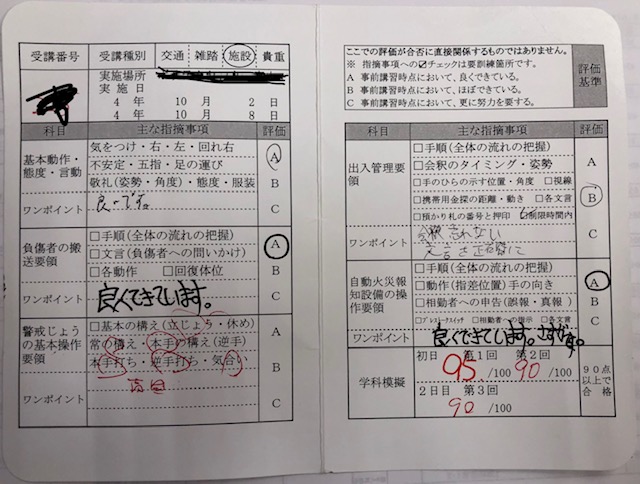 受講番号 受講種別 交通 雑踏 施設 貴重
実施場所
実施日
4 年 10 月 2 日
4 年 10 月 8 日
科目 主な指摘事項 評価
基本動作・態度・言動
気をつけ・右・左・回れ右
不安定・五指・足の運び
敬礼(姿勢・角度)・態度・服装
A
B
C
ワンポイント 良いです。
負傷者の搬送要領
□手順(全体の流れの把握)
□文言(負傷者への問いかけ)
□各動作 □回復体位
A
B
C
ワンポイント 良くできています。
警戒じょうの基本操作要領
□基本の構え(立じょう・休め)
常の構え・本手の構え(逆手)
本手打ち・逆手打ち・気合
A
B
C
ワンポイント
ここでの評価が合否に直接関係するものではありません。
※ 指摘事項への☑チェックは要訓練箇所です。
A 事前講習時点において、良くできている。
B 事前講習時点において、ほぼできている。
C 事前講習時点において、更に努力を要する。
評価基準
科目 主な指摘事項 評価
出入管理要領
□手順(全体の流れの把握)
□会釈のタイミング・姿勢
□手のひらの示す位置・角度 □視線
□携帯用金探の距離・動き □各文言
□預かり札の番号と押印 ☑制限時間内
A
B
C
ワンポイント
文言を正確に
自動火災報知設備の操作要領
□手順(全体の流れの把握)
□動作(指差位置)手の向き
□相勤者への申告(誤報・真報)
□相勤者への指示 □各文言
A
B
C
ワンポイント 良くできています。さすがです。
学科模擬
初日 第1回 第2回
95 /100 90 /100
2日目 第3回
90 /100
90点以上で合格